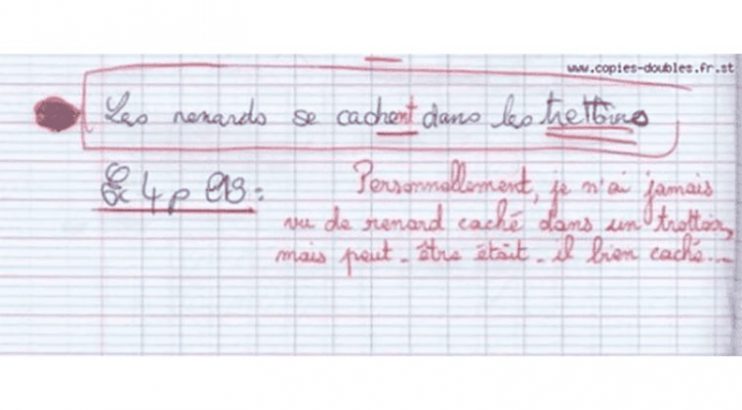 www.copies-doubles.fr.st
Les renards se cachent dans les trottoirs
Ex 4 p
Personnellement, je n'ai jamais
vu de renard caché dans un trottoir,
mais peut-être était-il bien caché...